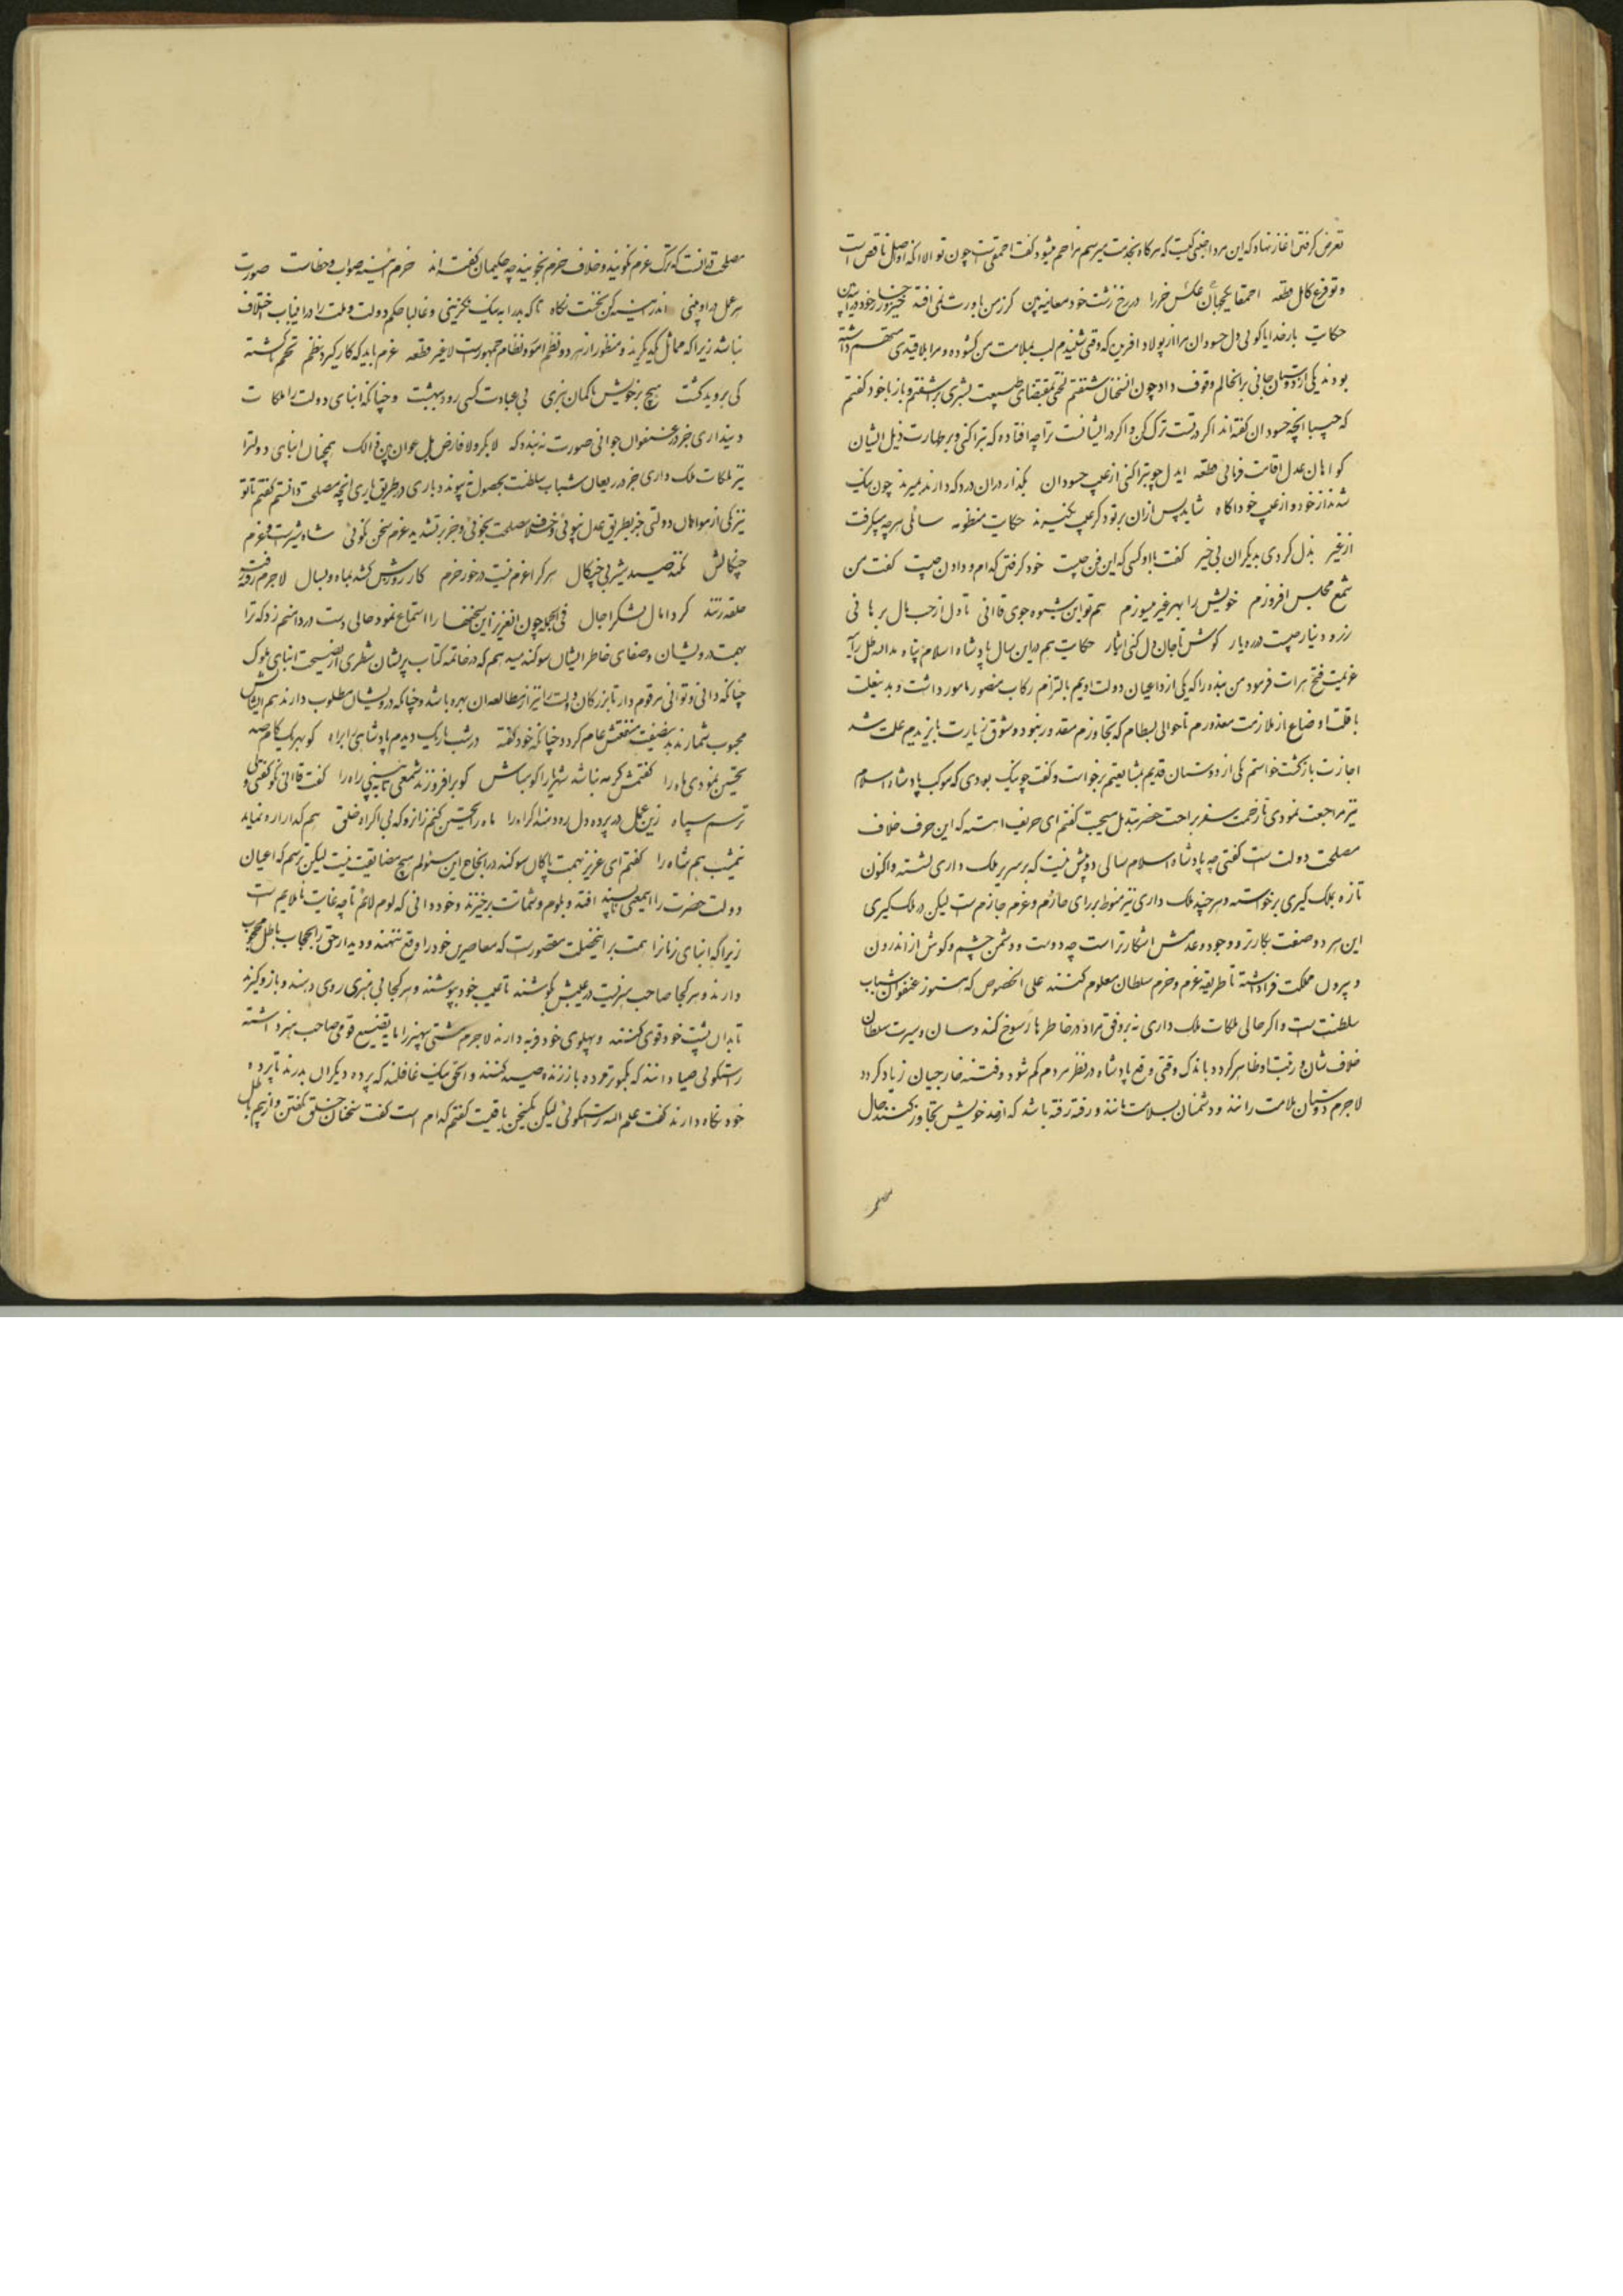 تعرض کرفتن اغاز نهاد که این مرد اجنبی کیست که هرکاه بخدمت میرسم مزاحم میشود کفت احمقیست چون تو الا انکه او اصل ناقص است
و تو فرع کامل قطعه احمقا یکجهان عکس خر را در رخ زشت خود معاینه بین کر ز من باورت نمی افتد خیز و در خود در آینه بین
حکایت بار خدایا کوئی دل حسودان مرا از پولاد افرین که وقتی شنیدم لب بملامت من کشوده و مرا بلاقیدی متهم داشته
بودند یکی از دوستان جانی بر انحالم وقوف داد چون انسخنان شنفتم لختی بمقتضای طبیعت بشری بر اشفتم و باز با خود کفتم
که حبیبا انچه حسودان کفته اند اکر در تست ترک کن و اکر در ایشانست ترا چه افتاده که تبرا کنی و بر طهارت ذیل ایشان
کواهان عدل اقامت فرمائی قطعه ایدل چو تبرا کنی از عیب حسودان بکذار دران درد که دارند بمیرند چون نیک
شدند از خود و از عیب خود اکاه شاید پس ازان بر تو دکر عیب نکیرند حکایت منظومه سائلی هرچه میکرفت
از غیر بذل کردی بدیکران بی خیر کفت با او کسی که این فن چیست خود کرفتن کدام و دادن چیست کفت من
شمع مجلس افروزم خویش را بهر غیر میسوزم هم تو این شیوه جوی قاآنی تا دل از حب مال برهانی
زر و دینار چیست در ره یار کوش تا جان و دل کنی ایثار حکایت هم در این سال پادشاه اسلام پناه مد الله ظل رآیته
عزیمت فتح هرات فرمود من بنده را که یکی از داعیان دولت اویم بالتزام رکاب منصور مامور داشت و بدینعلت
باقلت اوضاع از ملازمت معذورم تا حوالی بسطام که تجاوزم مقدور نبود و شوق زیارت بایزیدم علت شد
اجازت بازکشت خواستم یکی از دوستان قدیم بمشایعتم برخواست و کفت چو نیک بودی که موکب پادشاه اسلام
نیز مراجعت نمودی تا زحمت سفر براحت حضر تبدیل میجست کفتم ای حریف اهسته که این حرف خلاف
مصلحت دولت است کفتی چه پادشاه اسلام سالی دو بیش نیست که بر سریر ملک داری نشسته و اکنون
تازه بملک کیری برخواسته و هر چند ملک داری نیز منوط برای حازم و عزم جازم است لیکن در ملک کیری
این هر دو صفت بکارتر و وجود و عدمش اشکارتر است چه دوست و دشمن چشم و کوش از اندرون
و بیرون مملکت فرا داشته تا طریقه عزم و حزم سلطان معلوم کنند علی الخصوص که هنوز عنفوان شباب
سلطنت است و اکر حالی ملکات ملک داری نه بر وفق مراد در خاطرها رسوخ کند و سان و سیرت سلطان
خلاف شان و رتبت او ظاهر کردد باندک وقتی وقع پادشاه در نظر مردم کم شود و فتنه خارجیان زیاد کردد
لاجرم دوستان بلامت رانند و دشمنان بسلامت مانند و رفته رفته باشد که از حد خویش تجاوز کنند حال
مصلحت
مصلحت وقت انست که ترک عزم نکوئید و خلاف حزم نجوئید چه حکیمان کفته اند حزم آئینه صواب و خطاست صورت
هر عمل در او بینی اندر آئینه کن نخست نکاه تا که بد را به نیک نکزینی و غالبا حکم دولت و ملت را در اینباب اختلاف
نباشد زیرا که مماثل یکدیکرند و منظور از هر دو نظم امور و نظام جمهورست لا غیر قطعه عزم باید که کار کیرد نظم تخم کشته
کی بروید کشت هیچ بر خویش ناکمان نبری بی عبادت کسی رود ببهشت و چنانکه ابنای دولت را ملکات
دینداری جز در عنفوان جوانی صورت نه بندد که لا بکر و لا فارض بل عوان بین ذالک همچنان ابنای دولت را
نیز ملکات ملک داری جز در ریعان شباب سلطنت بحصول نه پیوندد باری در طریق یاری انچه مصلحت دانستم کفتم تا تو
نیز که از هواخواهان دولتی جز بطریق عدل نپوئی و خلاف مصلحت نجوئی و جز بر تشدید عزم سخن نکوئی شاه شیرست و عزم
چنکالش نکند صید شیر بی چنکال هر کرا عزم نیست در خور حزم کار روزش کشد بماه و سال لاجرم رفته رفته
حلقه زنند کرد امال لشکر اجال فی الجمله چون انعزیز این سخنها را استماع نمود حالی دست در دامنم زد که ترا
بهمت درویشان و صفای خاطر ایشان سوکند میدهم که در خاتمه کتاب پریشان شطری از نصیحت ابنای ملوک
چنانکه دانی و توانی مرقوم دار تا بزرکان دولت را نیز از مطالعه ان بهره باشد و چنانکه درویشان مطلوب دارند هم ایشانش
محبوب شمارند بدینصفت منفعتش عام کردد چنانکه خود کفته در شب تاریک دیدم پادشاهی ابراه کو بهر یک کام صد
تحسین نمودی ماه را کفتمش کر مه نباشد شهریارا کو مباش کو بر افروزند شمعی تا به بینی راه را کفت قاآنی نکو کفتی ولی
ترسم سپاه زین عمل در پرده دل ره دهند اکراه را ماه را تحسین کنم زانرو که بی اکراه خلق هم کدا را رو نماید
نیمشب هم شاه را کفتم ای عزیز بهمت پاکان سوکند در انجاح این مسئولم هیچ مضایقت نیست لیکن ترسم که اعیان
دولت حضرت را اینمعنی ناپسند افتد و بلوم و شماتت برخیزند و خود دانی که لوم لائم تا چه غایت ناملایم است
زیرا که ابنای زمان را همت بر اینخصلت مقصورست که معاصرین خود را وقع ننهند و دیدار حق را بحجاب باطل محجوب
دارند و هر کجا صاحب هنریست در عیبش کوشند تا عیب خود بپوشند و هر کجا بی هنری روی دهند و بازو کیرند
تا بدان پشت خود قوی کنند و پهلوی خود فربه دارند لاجرم مشتی بیهنر را مایه تضییع قومی صاحب هنر داشته
راست کوئی صیادانند که بکبوتر مرده باز زنده صید کنند و الحق نیک غافلند که پرده دیکران بدرند تا پرده
خود نکاه دارند کفت علم الله راست کوئی لیکن یکسخن باقیست کفتم کدام است کفت سخنان حق کفتن و از بیم باطل